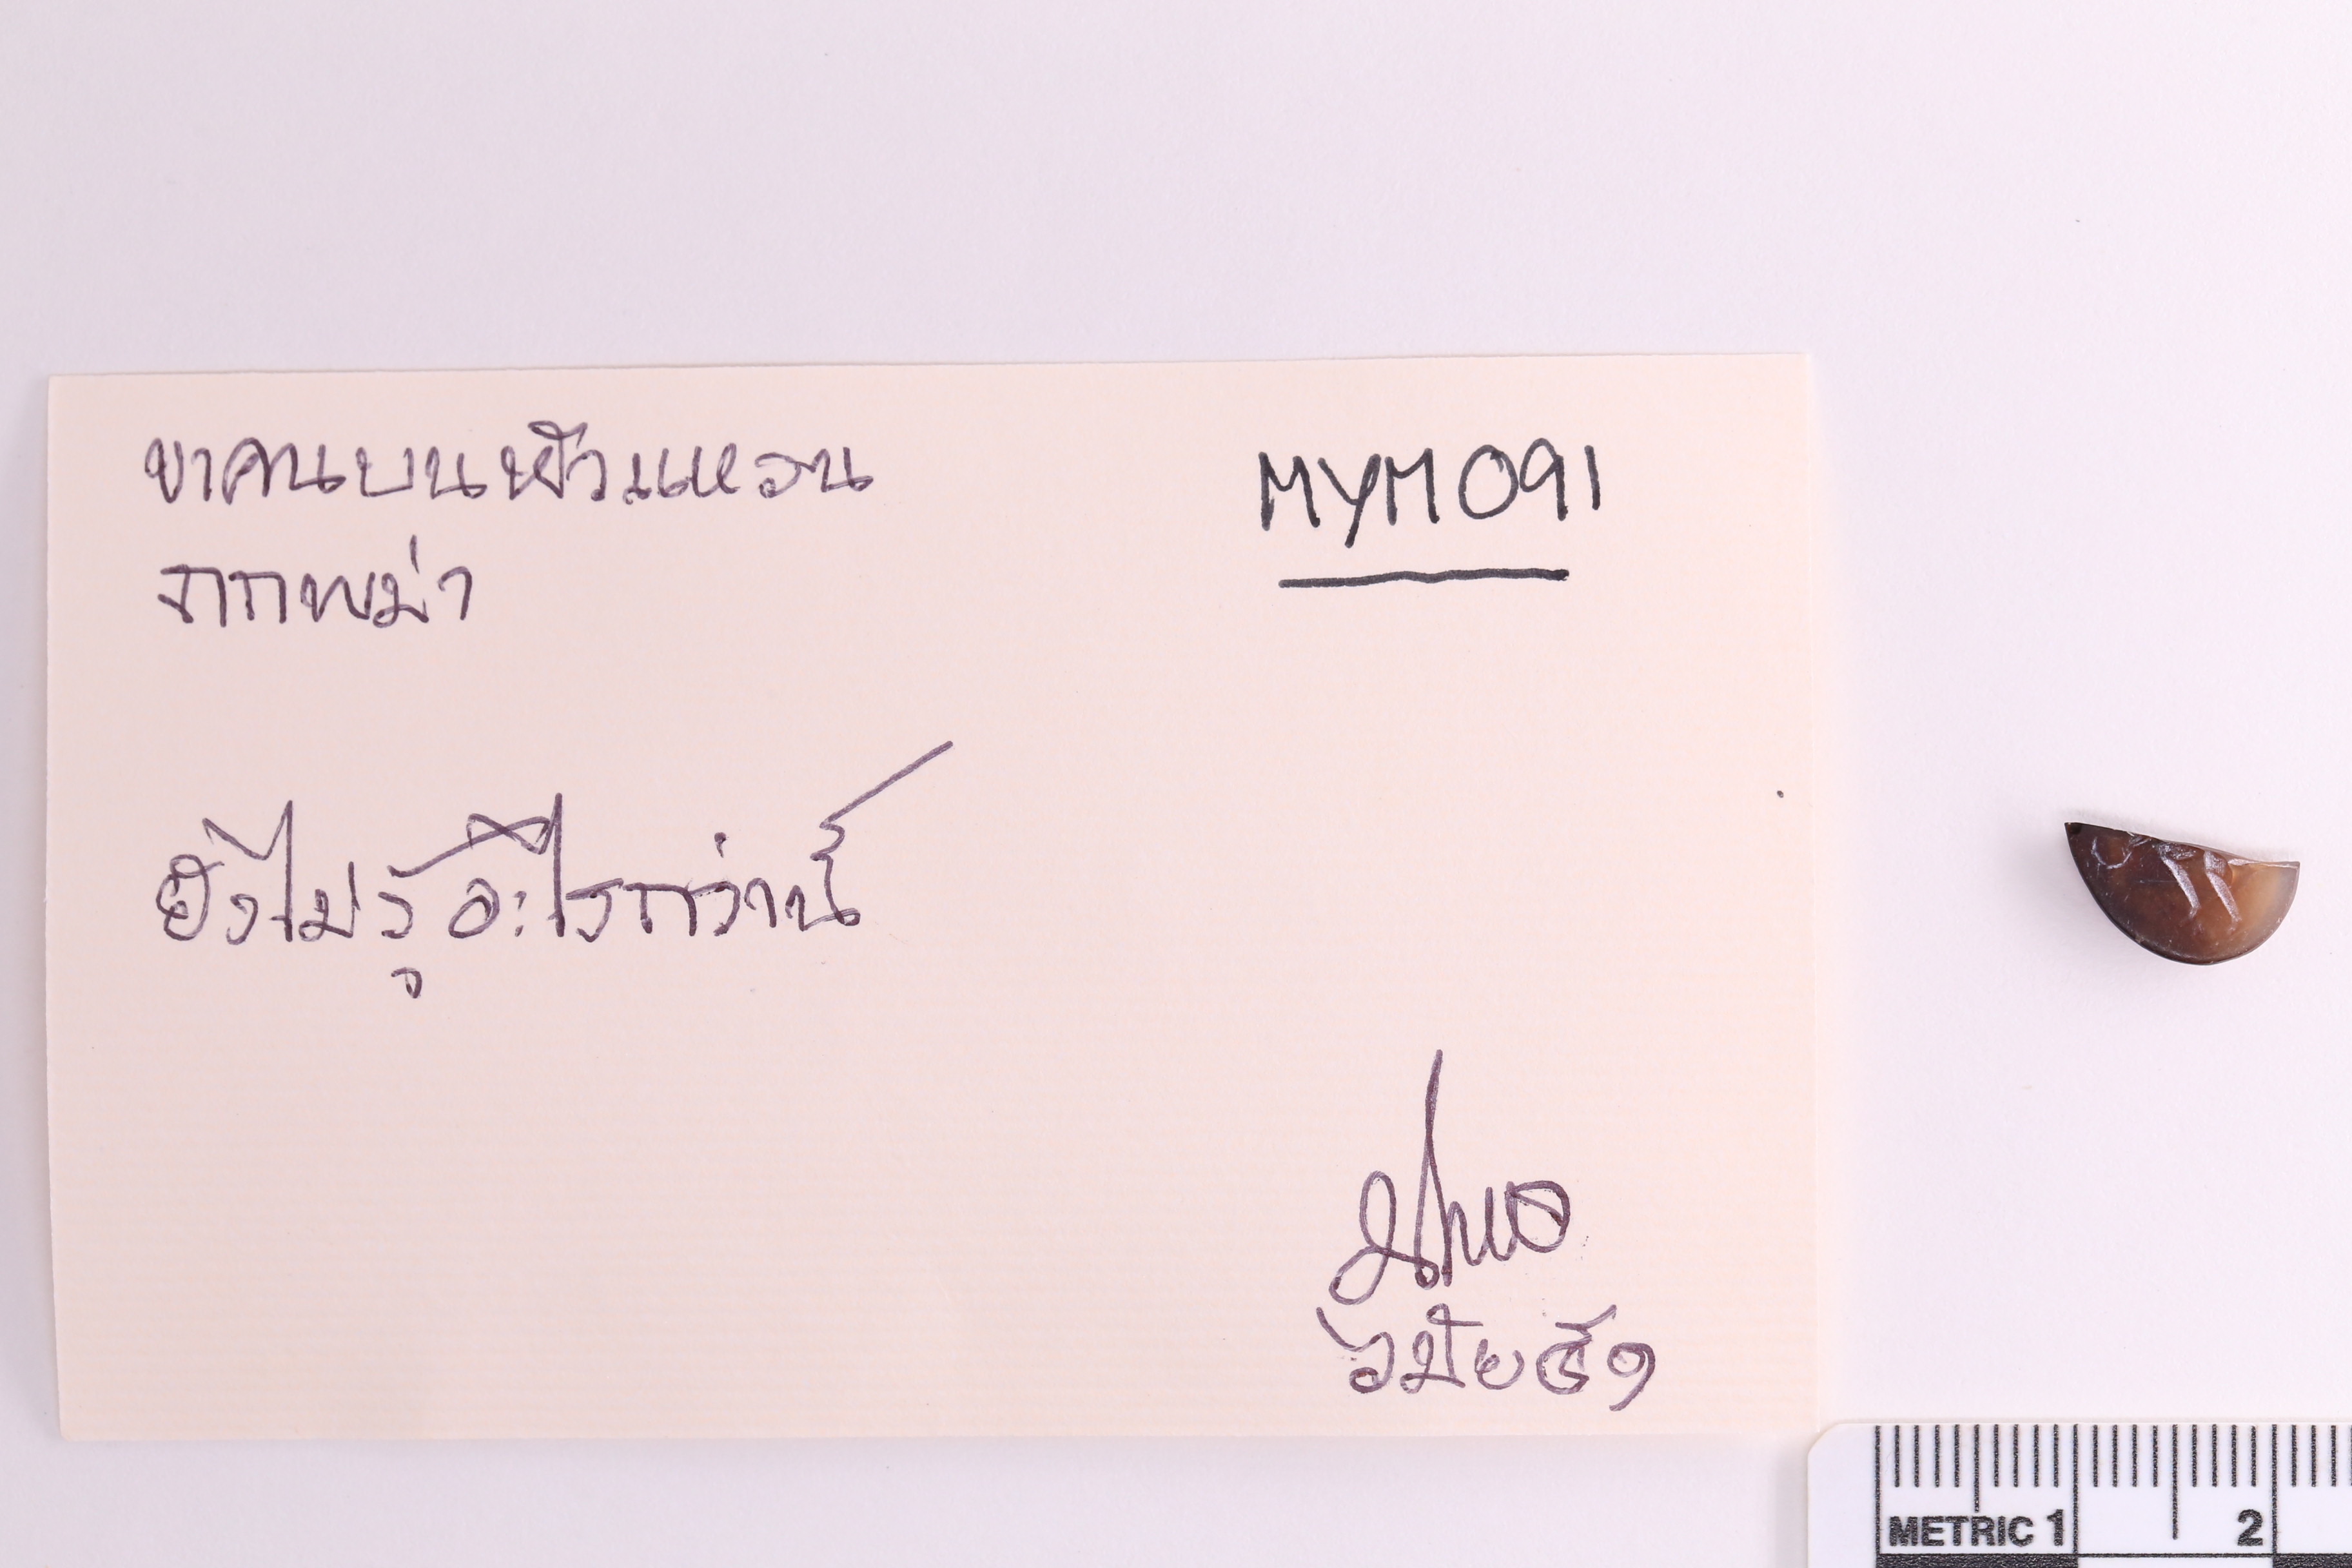 ขาคนบนหัวแหวน
จากพม่า
MYM091
ยังไม่รู้อะไรกว่านี้
๖ เมย ๕๑
METRIC 1 2